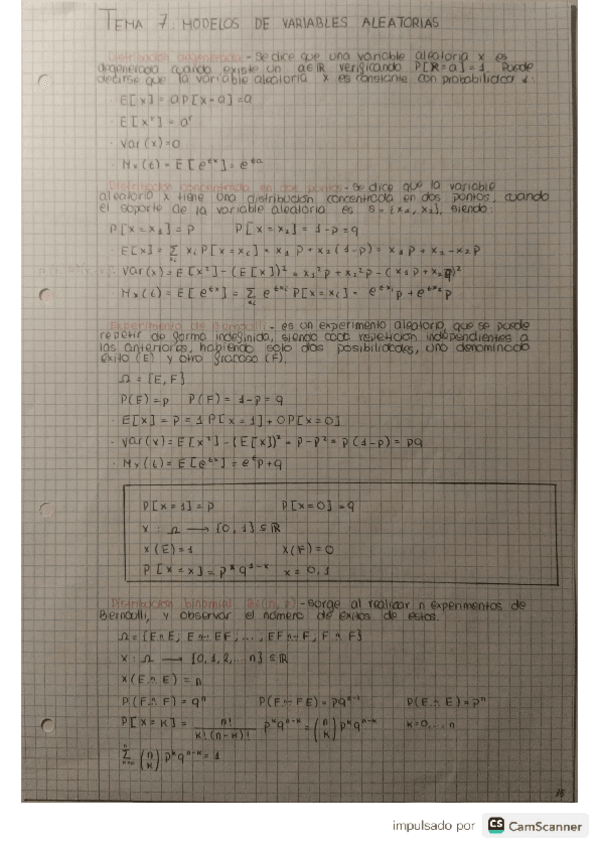 TEMA 7: MODELOS DE VARIABLES ALEATORIAS
Distribución degenerada - Se dice que una variable aleatoria x es
degenerada cuando existe un a∈ℝ verificando P[X=a]=1. Puede
decirse que la variable aleatoria x es constante con probabilidad 1:
· E[x] = a P[x=a] = a
· E[xʳ] = aʳ
· Var(x)=0
· Mx(t) = E[eᵗˣ] = eᵗᵃ
Distribución concentrada en dos puntos - Se dice que la variable
aleatoria x tiene una distribución concentrada en dos puntos, cuando
el soporte de la variable aleatoria es S={x₁, x₂}, siendo:
P[x=x₁] = p P[x=x₂] = 1-p = q
· E[x] = Σ xᵢ P[x=xᵢ] = x₁ p + x₂(1-p) = x₁ p + x₂ - x₂p
· Var(x) = E[x²] - (E[x])² = x₁²p + x₂²p - (x₁p + x₂q)²
· Mx(t) = E[eᵗˣ] = Σ eᵗˣⁱ P[x=xᵢ] = eᵗˣ¹p + eᵗˣ²p
Experimento de Bernoulli - es un experimento aleatorio, que se puede
repetir de forma indefinida, siendo cada repetición independientes a
las anteriores, habiendo solo dos posibilidades, uno denominado
éxito (E) y otro fracaso (F).
Ω = {E, F}
P(E)=p P(F) = 1-p = q
· E[x] = p = 1 P[x=1] + 0 P[x=0]
· Var(x) = E[x²] - (E[x])² = p - p² = p(1-p) = pq
· Mx(t) = E[eᵗˣ] = eᵗp + q
P[x=1] = p P[x=0] = q
x : Ω → {0, 1} ⊆ ℝ
x(E) = 1 x(F) = 0
P[x=x] = pˣ q¹⁻ˣ x = 0, 1
Distribución binomial - Surge al realizar n experimentos de
Bernoulli, y observar el número de éxitos de estos.
Ω = {E ... E, E ... EF, ..., EF ... F, F ... F}
x : Ω → {0, 1, 2, ... n} ⊆ ℝ
x(E ... E) = n
P(F ... F) = qⁿ P(F ... FE) = pqⁿ⁻¹ P(E ... E) = pⁿ
P[x=k] = n! / k!(n-k)! pᵏqⁿ⁻ᵏ = (n k) pᵏqⁿ⁻ᵏ k = 0, ... n
Σ (n k) pᵏqⁿ⁻ᵏ = 1
impulsado por CS CamScanner